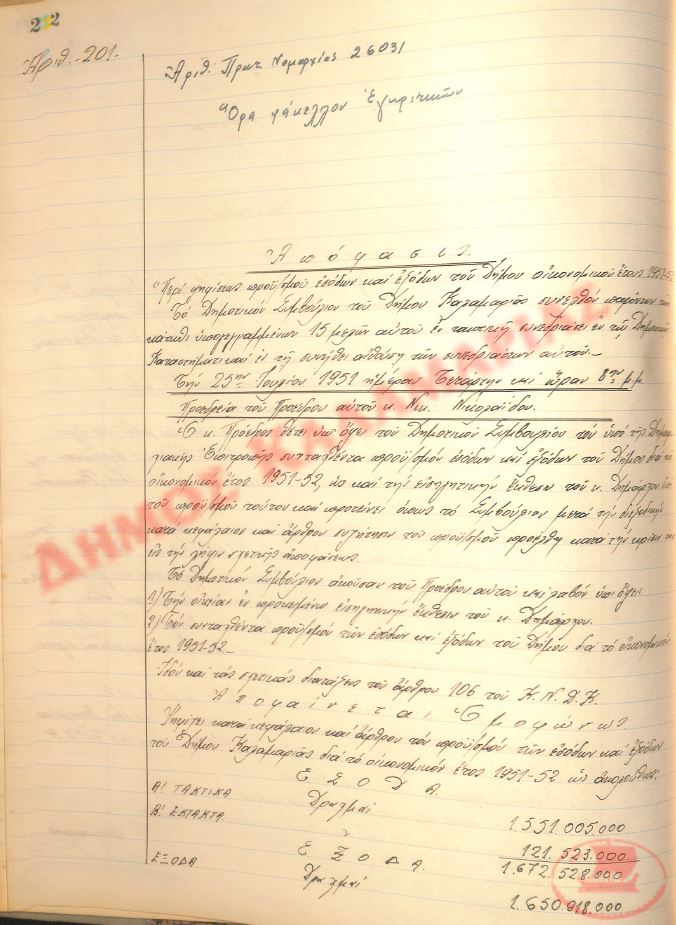 212
Ἀριθ. -201-
Ἀριθ. Πρωτ. Νομαρχίας 26031
Ὅρα φάκελλον ἐγκριτικῶν
Ἀπόφασις.
Περί ψηφίσεως προϋπ/σμοῦ ἐσόδων καί ἐξόδων τοῦ Δήμου οἰκονομικοῦ ἔτους 1951-52
Τό Δημοτικόν Συμβούλιον τοῦ Δήμου Καλαμαριᾶς συνελθόν παρόντων τῶν
κάτωθι ὑπογεγραμμένων 15 μελῶν αὐτοῦ ἐν τακτικῇ συνεδριάσει ἐν τῷ Δημοτικῷ
Καταστήματι καί ἐν τῇ συνήθει αἰθούσῃ τῶν συνεδριάσεων αὐτοῦ.-
Τήν 25ην Ἰουλίου 1951 ἡμέραν Τετάρτην καί ὥραν 8ην μ.μ
Προεδρεία τοῦ Προέδρου αὐτοῦ κ. Νικ. Νικολαΐδου.
Ὁ κ. Πρόεδρος θέτει ὑπ' ὄψει τοῦ Δημοτικοῦ Συμβουλίου τόν ὑπό τῆς Δημαρ-
χιακῆς Ἐπιτροπῆς συνταχθέντα προϋπ/σμόν ἐσόδων καί ἐξόδων τοῦ Δήμου διά τό
οἰκονομικόν ἔτος 1951-52, ὡς καί τήν εἰσηγητικήν ἔκθεσιν τοῦ κ. Δημάρχου ἐπί
τοῦ προϋπ/σμοῦ τούτου καί προτείνει ὅπως τό Συμβούλιον μετά τήν διεξοδικήν
κατά κεφάλαιον καί ἄρθρον συζήτησιν τοῦ προϋπ/σμοῦ προέλθῃ κατά τήν κρίσιν του
εἰς τήν λῆψιν σχετικῆς ἀποφάσεως.
Τό Δημοτικόν Συμβούλιον ἀκοῦσαν τοῦ Προέδρου αὐτοῦ καί λαβόν ὑπ' ὄψει
1) Τήν οἰκείαν ἐν προκειμένῳ εἰσηγητικήν ἔκθεσιν τοῦ κ. Δημάρχου.
2) Τόν συνταχθέντα προϋπ/σμόν τῶν ἐσόδων καί ἐξόδων τοῦ Δήμου διά τό οἰκονομικόν
ἔτος 1951-52-
Ἰδόν καί τάς σχετικάς διατάξεις τοῦ ἄρθρου 106 τοῦ Κ.Ν.Δ.Κ.
Ἀποφαίνεται Ὁμοφώνως.
Ψηφίζει κατά κεφάλαιον καί ἄρθρον τόν προϋπ/σμόν τῶν ἐσόδων καί ἐξόδων
τοῦ Δήμου Καλαμαριᾶς διά τό οἰκονομικόν ἔτος 1951-52 ὡς ἀκολούθως:
ΕΣΟΔΑ.
Α! ΤΑΚΤΙΚΑ Δραχμαί 1.551.005.000
Β! ΕΚΤΑΚΤΑ " 121.523.000
1.672.528.000
ΕΞΟΔΑ.
ΕΞΟΔΑ Δραχμαί 1.650.918.000
ΔΗΜΟΣ ΚΑΛΑΜΑΡΙΑΣ